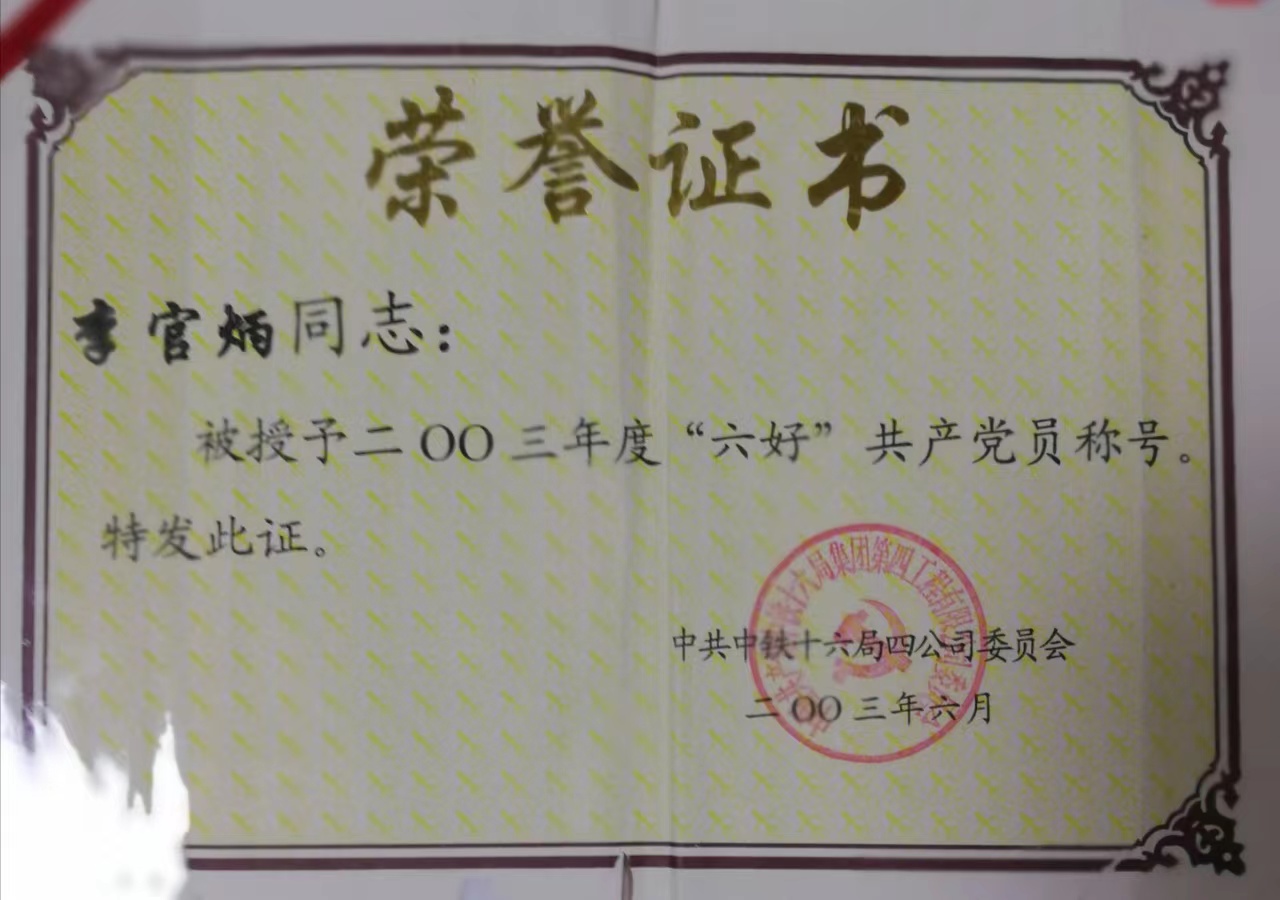 荣誉证书
李官炳同志：
被授予二OO三年度“六好”共产党员称号。
特发此证。
中共中铁十六局四公司委员会
二OO三年六月
十六局集团第四工程有限